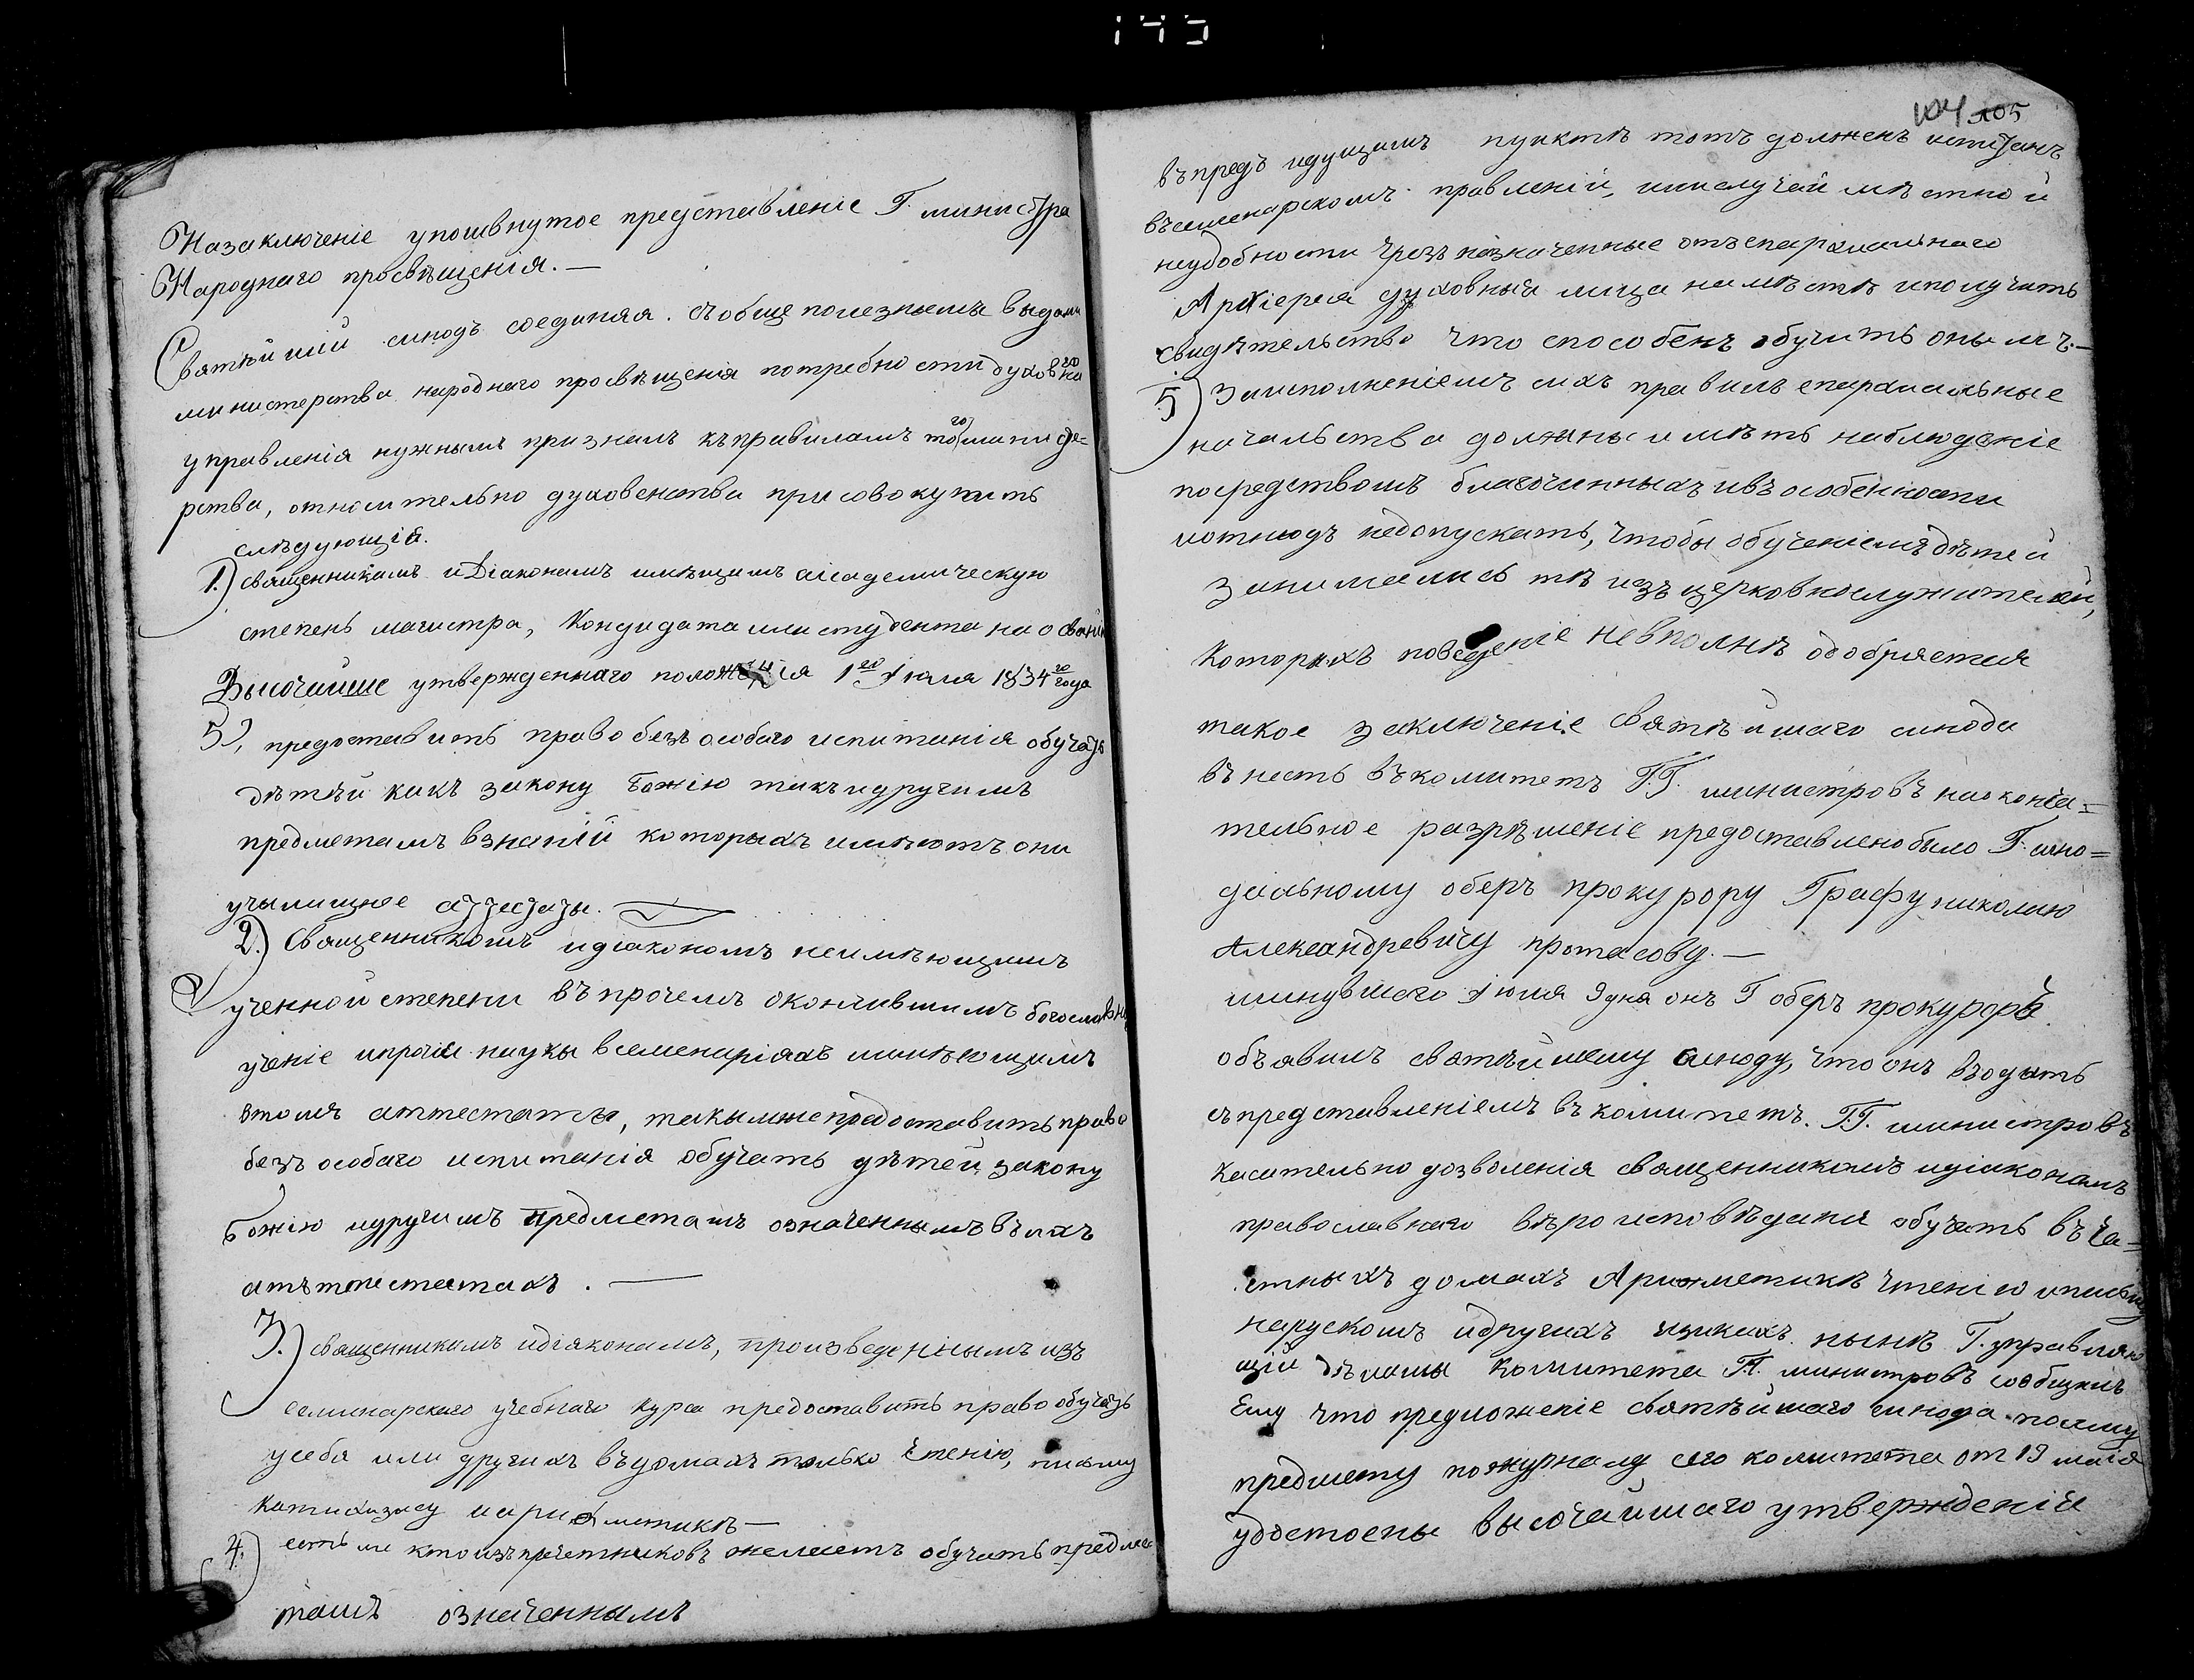 Назаключеніе упомѣнутое представленіе Г. министра
Народнаго просвѣщенія. —
Святѣйшій синодъ соединяя. съобще полезнымъ видами
министерства народнаго просвѣщенія потребности духовнаго
управленія нужнымъ призналъ къправиламъ тогоминисте=
рства, относительно духовенства присовокупить
слѣдующія.
1.) священникамъ и Діаконамъ имѣщимъ академическую
степень магистра, Кондидата или студента на основаніи
Высочайше утвержденнаго положенія 1го Іюля 1834го года
5), предоставить право безъ особаго испитанія обучать
дѣтѣй какъ закону Божію такъ идругимъ
предметамъ взнаніи которыхъ имѣютъ они
училищнее аттестаты. —
2.) Священникомъ идіакономъ неимѣющимъ
ученной степени въ прочемъ окончившимъ богословную
ученіе ипрочія науки всеменаріяхъ иимѣющимъ
втомъ аттестаты, такымже предоставить право
безъ особаго испитанія обучать дѣтей закону
божію идругимъ предметамъ означеннымъ въ ихъ
атътестатахъ. —
3.) священникамъ идіяконамъ, произведеннымъ изъ
семинарскаго учебнаго курса предоставить право обучать
усебя или другихъ въ домахъ только чтенію, письму
катихизису иариѳметикѣ —
4.) естьли ктоизъ причетниковъ желаетъ обучать предме
тамъ означеннымъ
104 105
въпредъ идущимъ пунктѣ тотъ долженъ испитанъ
въсеменарскомъ правленіи, иливслучаи мѣстной
неудобности чрезъ назначенные отъепархиальнаго
Архіерея духовныя лица намѣстѣ иполучить
свидѣтельство что способенъ обучить онымъ. —
5) Заисполненіемъ сихъ правилъ епархиальные
начальства должны имѣть наблюденіе
посредствомъ благочинныхъ ивъ особенности
иотнюдъ недопускать, чтобы обученіемъ дѣтей
занимались тѣ изъ церковнослужителей,
Которыхъ поведеніе невполнѣ одобряется
такое заключеніе святѣйшаго синода
вънесть въкомитетъ Г.Г. министровъ наоконча=
тельное разрѣшеніе предоставлено было Г. сино=
дальному оберъ прокурору Графу николаю
Александревичу протасову. —
минувшаго Іюля 9 дня онъ Г оберъ прокуроръ
объявилъ святѣйшему синоду, что онъ взодитъ
съпредставленіемъ въ комитетъ. Г.Г. министровъ
касательно дозволенія священникамъ идіаконамъ
православнаго вѣроисповѣданія обучать въ ча=
стныхъ домахъ Ариѳметикѣ чтенію иписму
нарускомъ идругихъ языкахъ. нынѣ Г. управляю
щій дѣлами комитета Г.Г. министровъ сообщилъ
Ему что предложеніе святѣйшаго синода посему
предмету пожурналу сего комитета от 19 маія
удостоены высочайшаго утвержденія